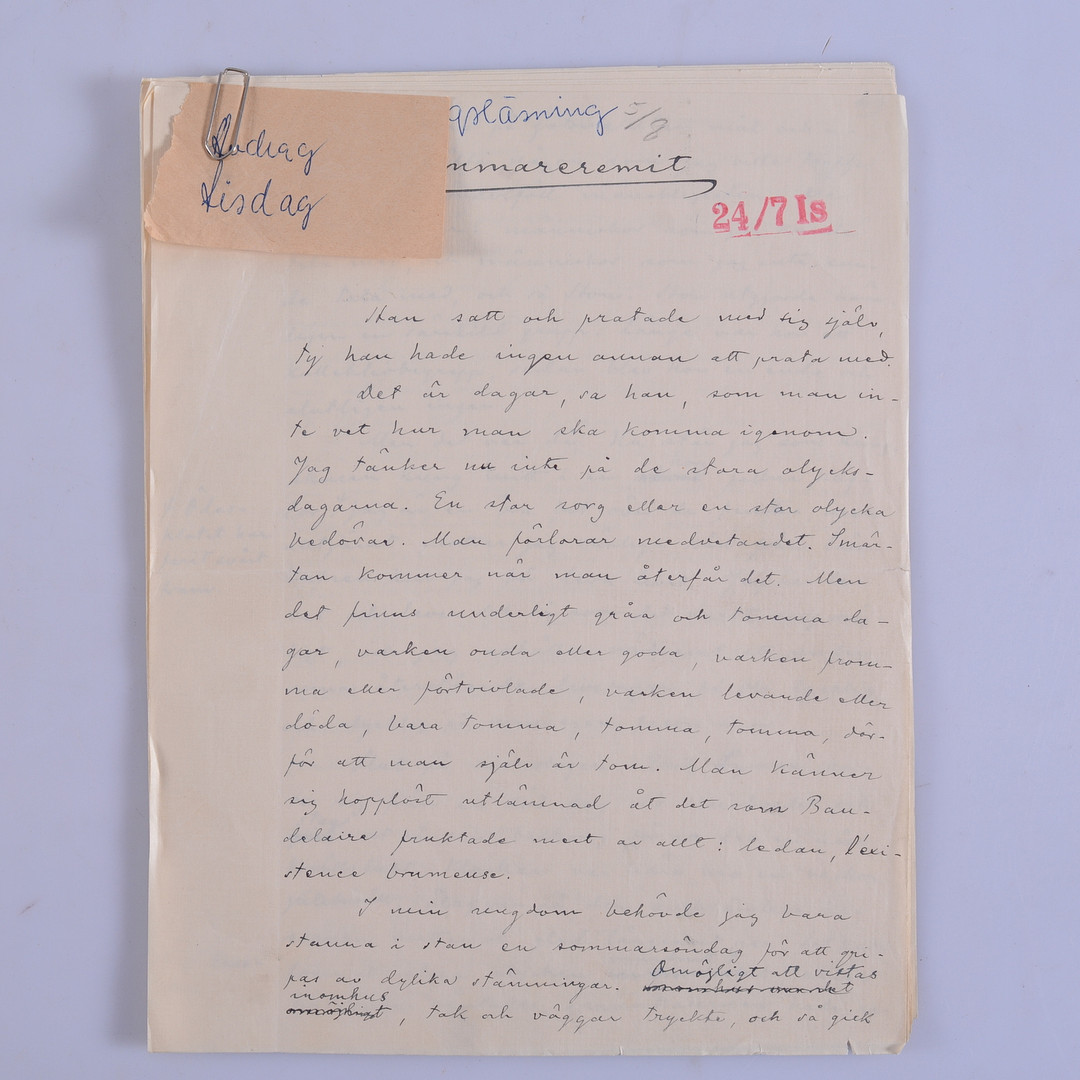 Lvdrag
Tisdag
gsläsning 5/8
mmareremit
24/7 Is
Han satt och pratade med sig själv,
ty han hade ingen annan att prata med.
Det är dagar, sa han, som man in-
te vet hur man ska komma igenom.
Jag tänker nu inte på de stora olycks-
dagarna. En stor sorg eller en stor olycka
bedövar. Man förlorar medvetandet. Smär-
tan kommer när man återfår det. Men
det finns underligt gråa och tomma da-
gar, varken onda eller goda, varken from-
ma eller förtvivlade, varken levande eller
döda, bara tomma, tomma, tomma, där-
för att man själv är tom. Man känner
sig hopplöst utlämnad åt det som Bau-
delaire fruktade mest av allt: ledan, l'exi-
stence brumeuse.
I min ungdom behövde jag bara
stanna i stan en sommarsöndag för att gri-
pas av dylika stämningar. Omöjligt att vistas
inomhus, tak och väggar tryckte, och så gick